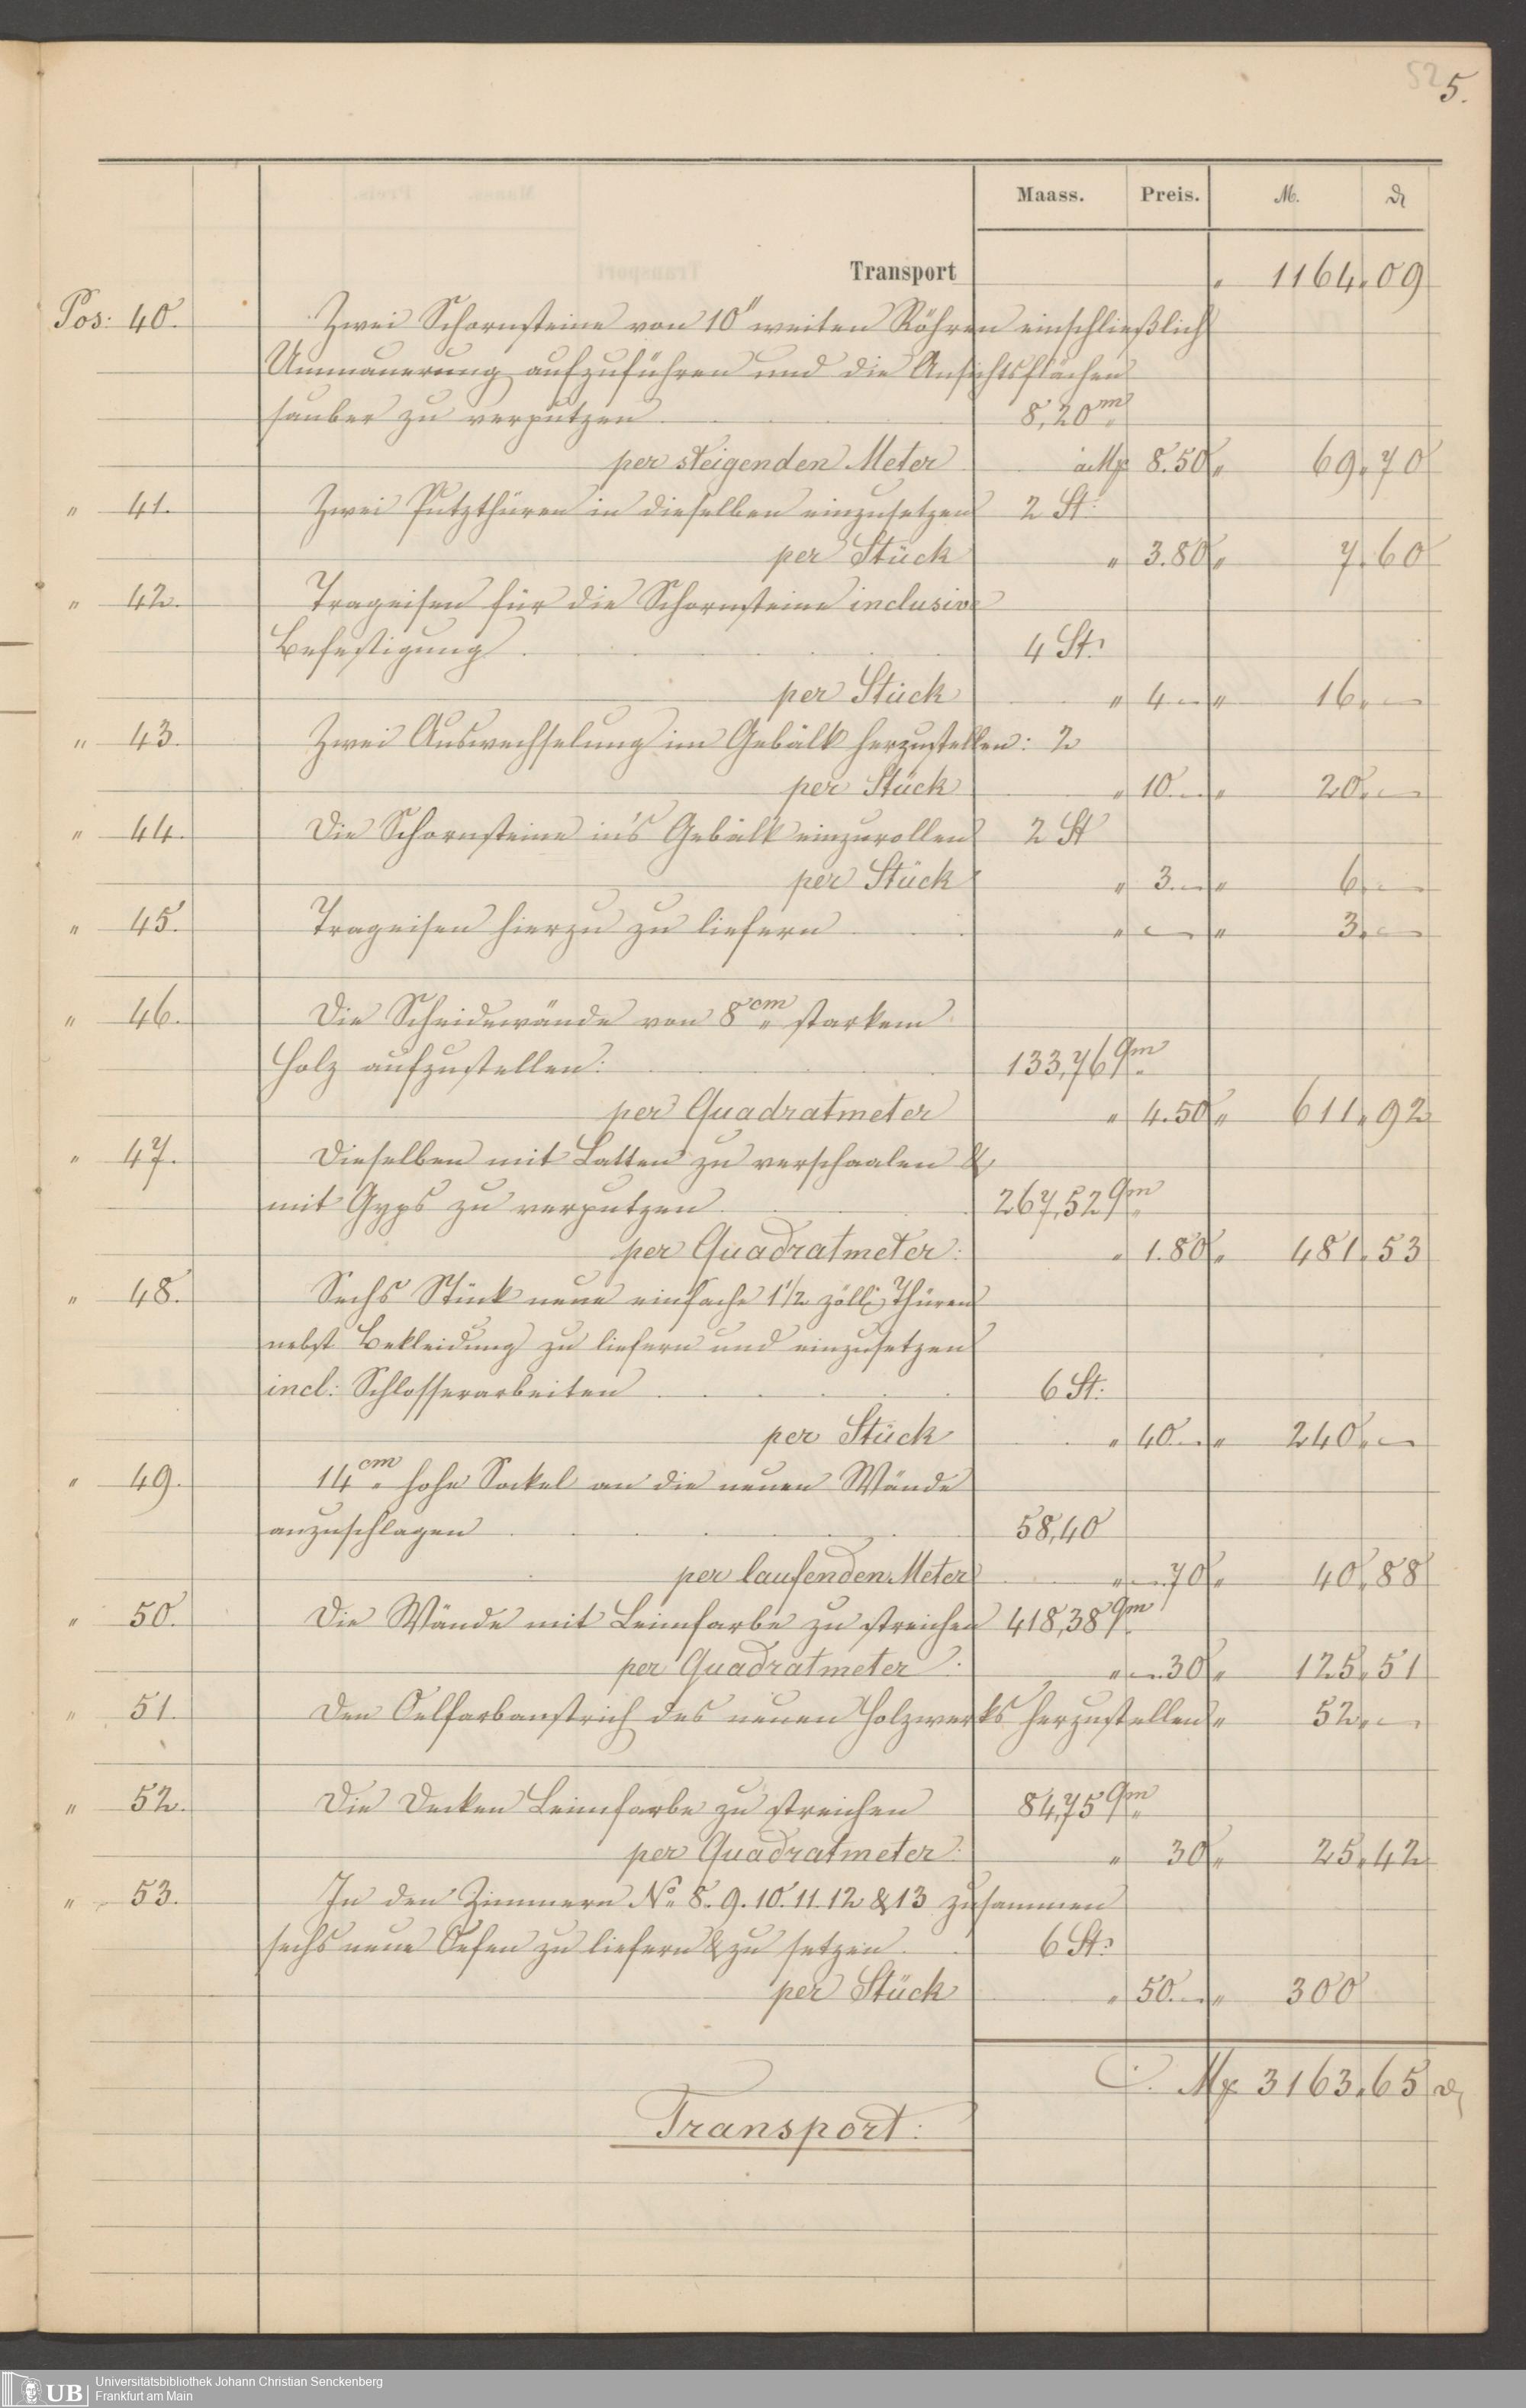 52 5.
Maass. Preis. M. ₰
Transport " 1164 " 09
Pos: 40. Zwei Schornsteine von 10" weiten Röhren einschließlich
Ummauerung aufzuführen und die Ansichtsflächen
sauber zu verputzen 8,20 m
per steigenden Meter à Mk 8.50 " 69 " 70
" 41. Zwei Putzthüren in dieselben einzusetzen 2 St:
per Stück " 3.80 " 7 " 60
" 42. Trageisen für die Schornsteine inclusive
Befestigung 4 St:
per Stück " 4 — " 16 " —
" 43. Zwei Auswechselung im Gebälk herzustellen: 2
per Stück " 10 — " 20 " —
" 44. Die Schornsteine in's Gebälk einzurollen 2 St
per Stück " 3 — " 6 " —
" 45. Trageisen hierzu zu liefern " — " 3 " —
" 46. Die Scheidewände von 8 cm starkem
Holz aufzustellen: 133,76 qm
per Quadratmeter " 4.50 " 611 " 92
" 47. Dieselben mit Latten zu verschaalen &
mit Gyps zu verputzen 267,52 qm
per Quadratmeter: " 1.80 " 481 " 53
" 48. Sechs Stück neue einfache 1½ zöllig Thüren
nebst Bekleidung zu liefern und einzusetzen
incl: Schlosserarbeiten 6 St:
per Stück " 40 — " 240 " —
" 49. 14 cm hohe Sockel an die neuen Wände
anzuschlagen 58,40
per laufenden Meter " —.70 " 40 " 88
" 50. Die Wände mit Leimfarbe zu streichen 418,38 qm
per Quadratmeter: " —.30 " 125 " 51
" 51. Den Oelfarbanstrich des neuen Holzwerks herzustellen " 52 " —
" 52. Die Decken Leimfarbe zu streichen 84,75 qm
per Quadratmeter: " 30 " 25 " 42
" 53. In den Zimmern No 8. 9. 10. 11. 12 & 13 zusammen
sechs neue Oefen zu liefern & zu setzen 6 St:
per Stück " 50 — " 300
Mk 3163 " 65 ₰
Transport:
UB Universitätsbibliothek Johann Christian Senckenberg
Frankfurt am Main